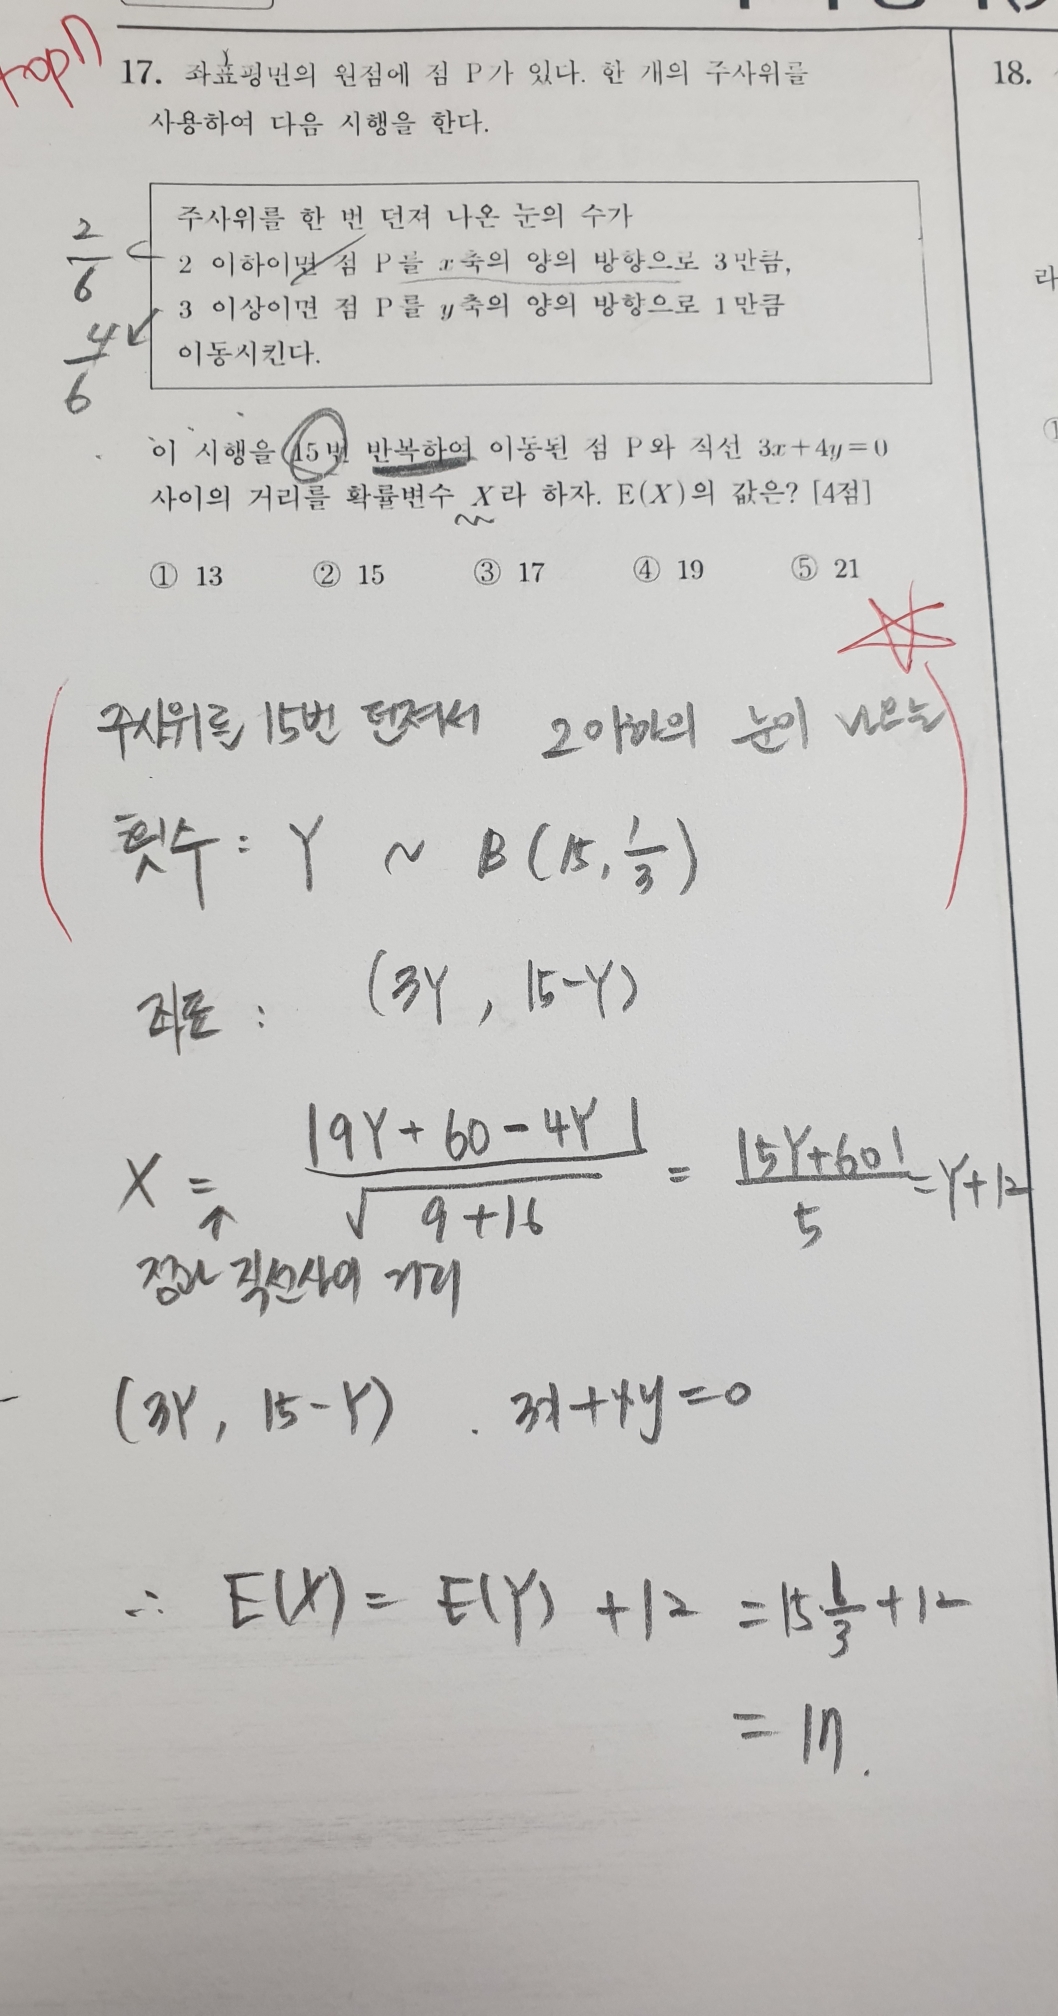 17. 좌표평면의 원점에 점 P가 있다. 한 개의 주사위를
사용하여 다음 시행을 한다.
18.
주사위를 한 번 던져 나온 눈의 수가
2 이하이면 점 P를 x축의 양의 방향으로 3만큼,
3 이상이면 점 P를 y축의 양의 방향으로 1만큼
이동시킨다.
2/6
4/6
라
이 시행을 15번 반복하여 이동된 점 P와 직선 3x+4y=0
사이의 거리를 확률변수 X라 하자. E(X)의 값은? [4점]
① 13 ② 15 ③ 17 ④ 19 ⑤ 21
①
주사위를 15번 던져서 2이하의 눈이 나오는
횟수 : Y ~ B(15, 1/3)
좌표 : (3Y, 15-Y)
X = |9Y+60-4Y| / √9+16 = |5Y+60| / 5 = Y+12
↑
점과 직선사이 거리
(3Y, 15-Y) . 3x+4y=0
∴ E(X) = E(Y) +12 = 15·1/3+12
= 17.